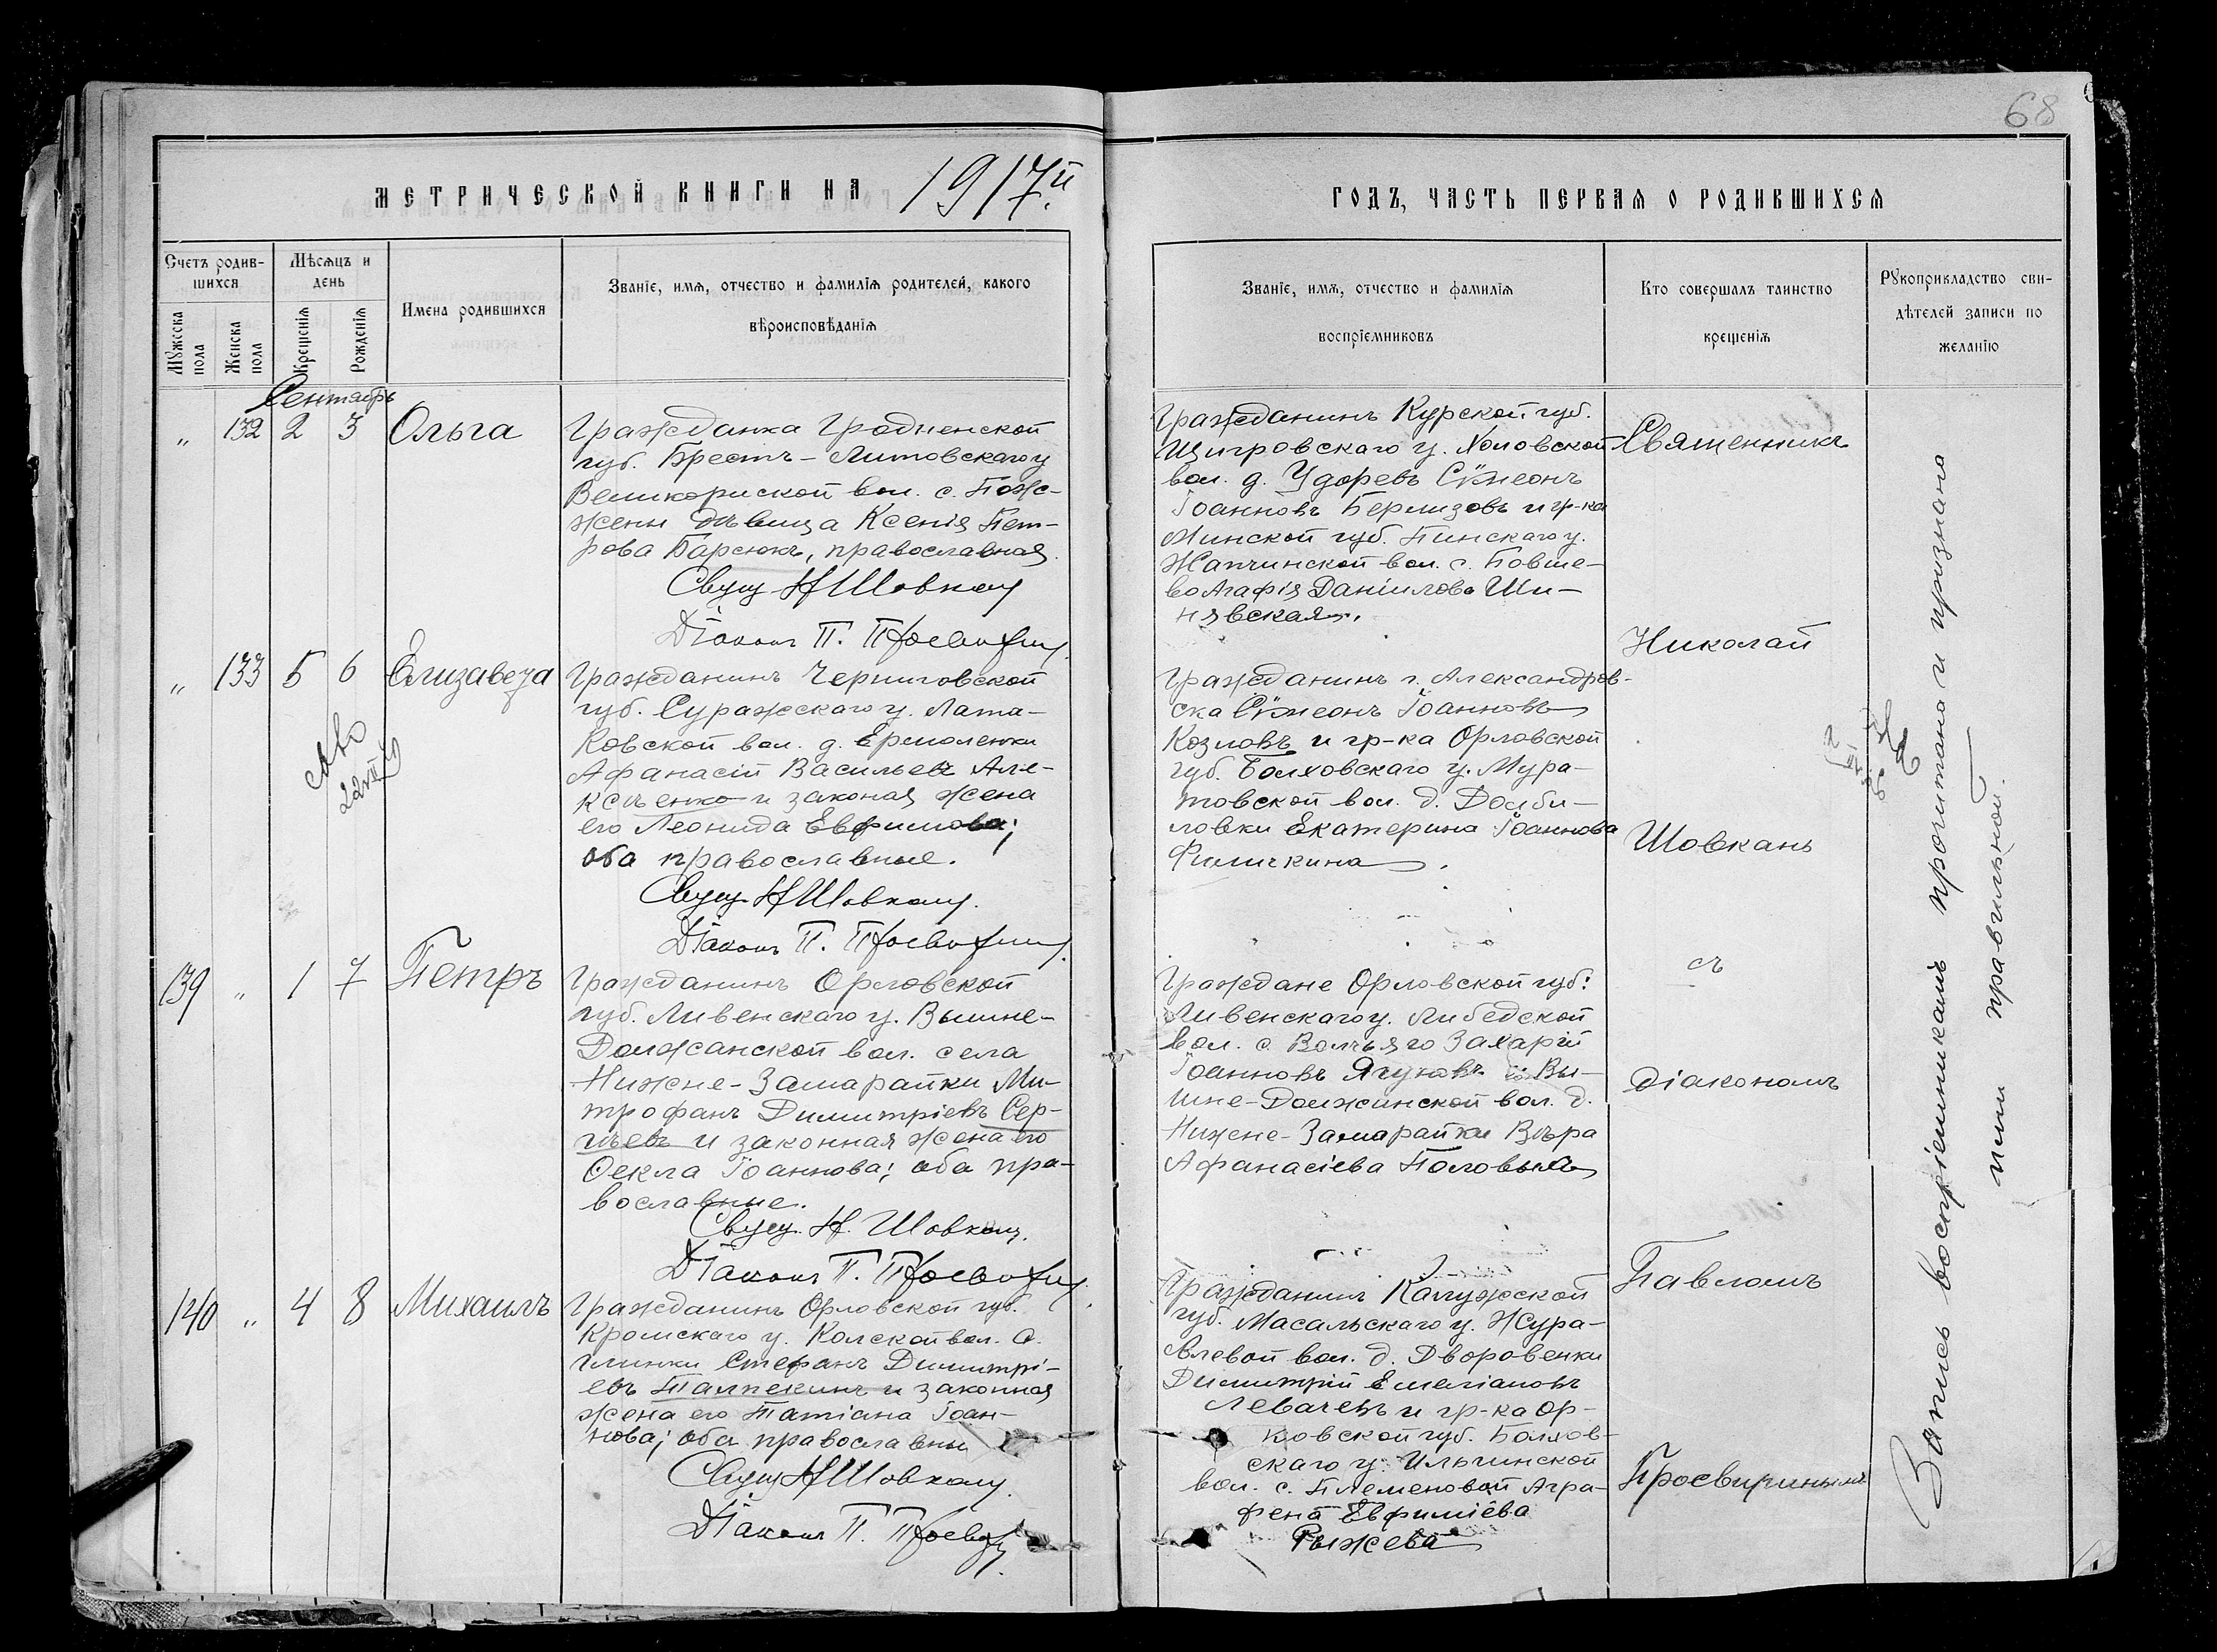 68
МЕТРИЧЕСКОЙ КНИГИ НА 1917й
ГОДЪ, ЧАСТЬ ПЕРВАЯ О РОДИВШИХСЯ
Счетъ родив-
шихся
Мужеска
пола
Женска
пола
Мѣсяцъ и
день
Крещенія
Рожденія
Имена родившихся
Званіе, имя, отчество и фамилія родителей, какого
вѣроисповѣданія
Званіе, имя, отчество и фамилія
воспріемниковъ
Кто совершалъ таинство
крещенія
Рукоприкладство сви-
дѣтелей записи по
желанію
Сентябрь
„ 132 2 3 Ольга
Гражданка Гродненской
губ. Брестъ-Литовскаго у
Великориской вол. с. Пож-
жены дѣвица Ксенія Пет-
рова Барсюкъ, православная.
Свящ Н Шовкань
Діаконъ П. Просвиринъ
Гражданинъ Курской губ.
Щигровскаго у.
вол. д. Удоревъ Сѵмеонъ
Іоанновъ Берлизовъ и гр-ка
Минской губ. Пинскаго у.
Жапчинской вол. с. Бовше-
во Агафія Даніилова Ши-
нявская.
„ 133 5 6 Елизавета
Гражданинъ Черниговской
губ. Суражскаго у. Лата-
ковской вол. д. Ермоленки
Афанасій Васильевъ Але-
ксѣенко и законая жена
его Леонида Евфимова;
оба православные.
Свящ Н Шовкань.
Діаконъ П. Просвиринъ
Гражданинъ г. Александров-
ска Сѵмеонъ Іоанновъ
Козловъ и гр-ка Орловской
губ. Болховскаго у. Мура-
товской вол. д. Долби-
ловки Екатерина Іоаннова
Филичкина.
139 „ 1 7 Петръ
Гражданинъ Орловской
губ. Ливенскаго у. Вышне-
Должанской вол. села
Нижне-Замарайки Ми-
трофанъ Димитріевъ Сер-
гѣевъ и законная жена его
Ѳекла Іоаннова; оба пра-
вославные.
Свящ. Н. Шовкань.
Діаконъ П. Просвиринъ
Граждане Орловской губ:
Ливенскаго у. Либедской
вол. с. Волчьяго Захарій
Іоанновъ Ягуновъ и Вы-
шне-Должинской вол. д.
Нижне-Замарайки Вѣра
Афанасіева
140 „ 4 8 Михаилъ
Гражданинъ Орловской губ.
Кромскаго у. Колской вол. с.
Глинки Стефанъ Димитрі-
евъ Талпекинъ и законная
жена его Татіана Іоан-
нова; оба православны
Свящ Н Шовкань.
Діаконъ П. Просвиринъ
Гражданинъ Калужской
губ. Масальскаго у. Жура-
влевой вол. д. Дворовенки
Димитрій Емеліановъ
Левачевъ и гр-ка Ор-
ловской губ. Болхов-
скаго у. Ильчинской
вол. с. Племеновой Агра-
фена Евфиміева
Рыжева
Священникъ
Николай
Шовкань
съ
діакономъ
Павломъ
Просвиринымъ
Запись воспріемникамъ прочитана и признана
ими правильной.